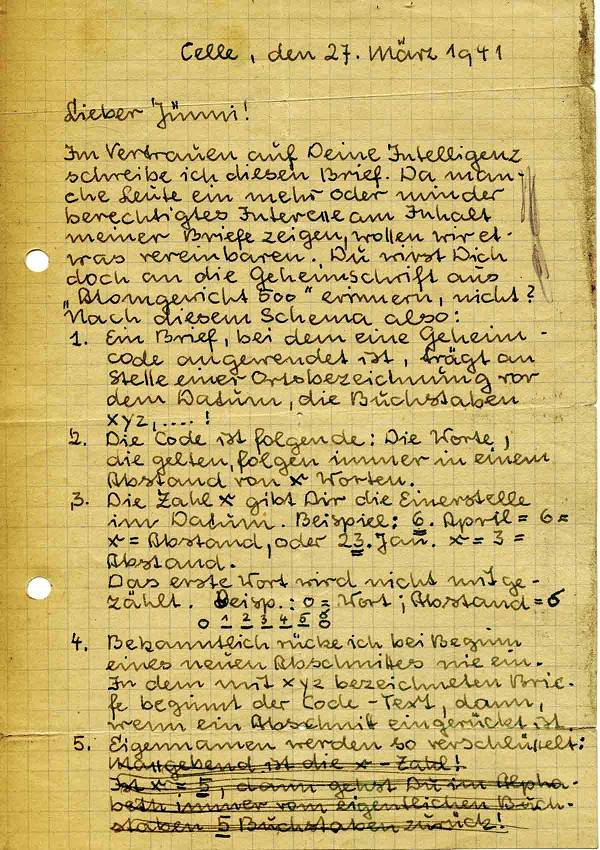 Celle, den 27. März 1941
Lieber Jünni!
Im Vertrauen auf Deine Intelligenz
schreibe ich diesen Brief. Da man-
che Leute ein mehr oder minder
berechtigtes Interesse am Inhalt
meiner Briefe zeigen, wollen wir et-
was vereinbaren. Du wirst Dich
doch an die Geheimschrift aus
„Atomgewicht 500“ erinnern, nicht?
Nach diesem Schema also:
1. Ein Brief, bei dem eine Geheim-
code angewendet ist, trägt an
Stelle einer Ortsbezeichnung vor
dem Datum, die Buchstaben
xyz,....!
2. Die Code ist folgende: Die Worte,
die gelten, folgen immer in einem
Abstand von x Worten.
3. Die Zahl x gibt Dir die Einerstelle
im Datum. Beispiel: 6. April = 6 =
x = Abstand, oder 23. Jan. x = 3 =
Abstand.
Das erste Wort wird nicht mitge-
zählt. Beisp.: o = Wort; Abstand = 6
o 1 2 3 4 5 6
4. Bekanntlich rücke ich bei Beginn
eines neuen Abschnittes nie ein.
In dem mit xyz bezeichneten Brie-
fe beginnt der Code-Text, dann,
wenn ein Abschnitt eingerückt ist.
5. Eigennamen werden so verschlüsselt:
Massgebend ist die x-Zahl!
Ist x = 5, dann gehst Du im Alpha-
beth immer vom eigentlichen Buch-
staben 5 Buchstaben zurück!